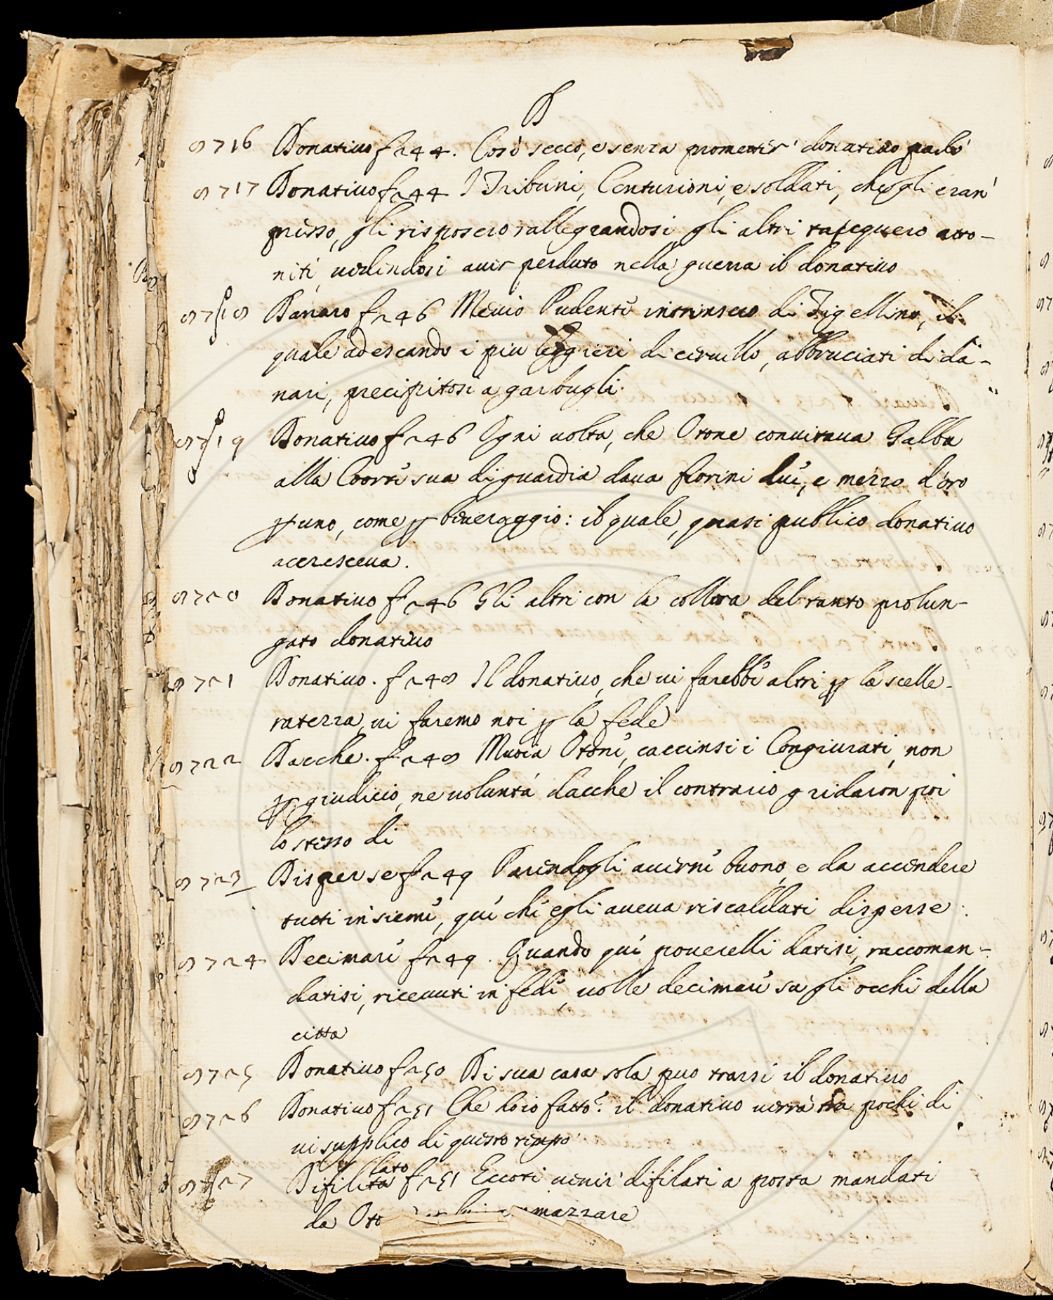 D
8716 Donatiuo f 244. Così secco, e senza prometter donatiuo parlò
8717 Donatiuo f 244 I Tribuni, Centurioni, e soldati, che gli eran
presso, gli risposero rallegrandosi gli altri tacquero atto-
niti, uedendosi auer perduto nella guerra il donatiuo
8718 Danaro f 246 Meuio Pudente intrinseco di Tigellino, il
quale adescando i piu leggieri di ceruello, abbruciati di da-
nari, precipitosi a garbugli
8719 Donatiuo f 246 Ogni uolta, che Otone conuitaua Galba
alla Coorte sua di guardia daua fiorini due, e mezzo d'oro
p uno, come p beueraggio: il quale, quasi publico donatiuo
accresceua.
8720 Donatiuo f 246 Gli altri con la collora del tanto prolun-
gato donatiuo
8721 Donatiuo. f 248 Il donatiuo, che ui farebbe altri p la scelle-
ratezza, ui faremo noi p la fede
8722 Dacche. f 248 Muoia Otone, caccinsi i Congiurati, non
p giudicio, ne uoluntà dacche il contrario gridaron poi
lo stesso di
8723 Disperse f 249 Parendogli auerne buono, e da accendere
tutti insieme, que che egli aueua riscaldati disperse
8724 Decimare f 249. Quando que pouerelli datisi, raccoman-
datisi, riceuuti in fede, uolle decimare su gli occhi della
citta
8725 Donatiuo f 250 Di sua casa sola puo trarsi il donatiuo
8726 Donatiuo f 251 Che doio fatto? il donatiuo uerra tra pochi di
ui supplico di questo tempo
8727 Difilato f 251 Eccoti uenir difilati a posta mandati
da Oto mazzare